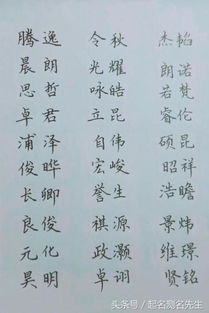 腾逸 令秋 杰韬
晨朗 光耀 朗诺
思哲 咏皓 若梵
卓君 立昆 睿伦
浦泽 自伟 硕昆
俊晔 宏峻 昭祥
长卿 誉生 浩瞻
良俊 祺源 景炜
元化 政灏 维璟
昊明 卓诩 贤铭
头条号/起名测名先生